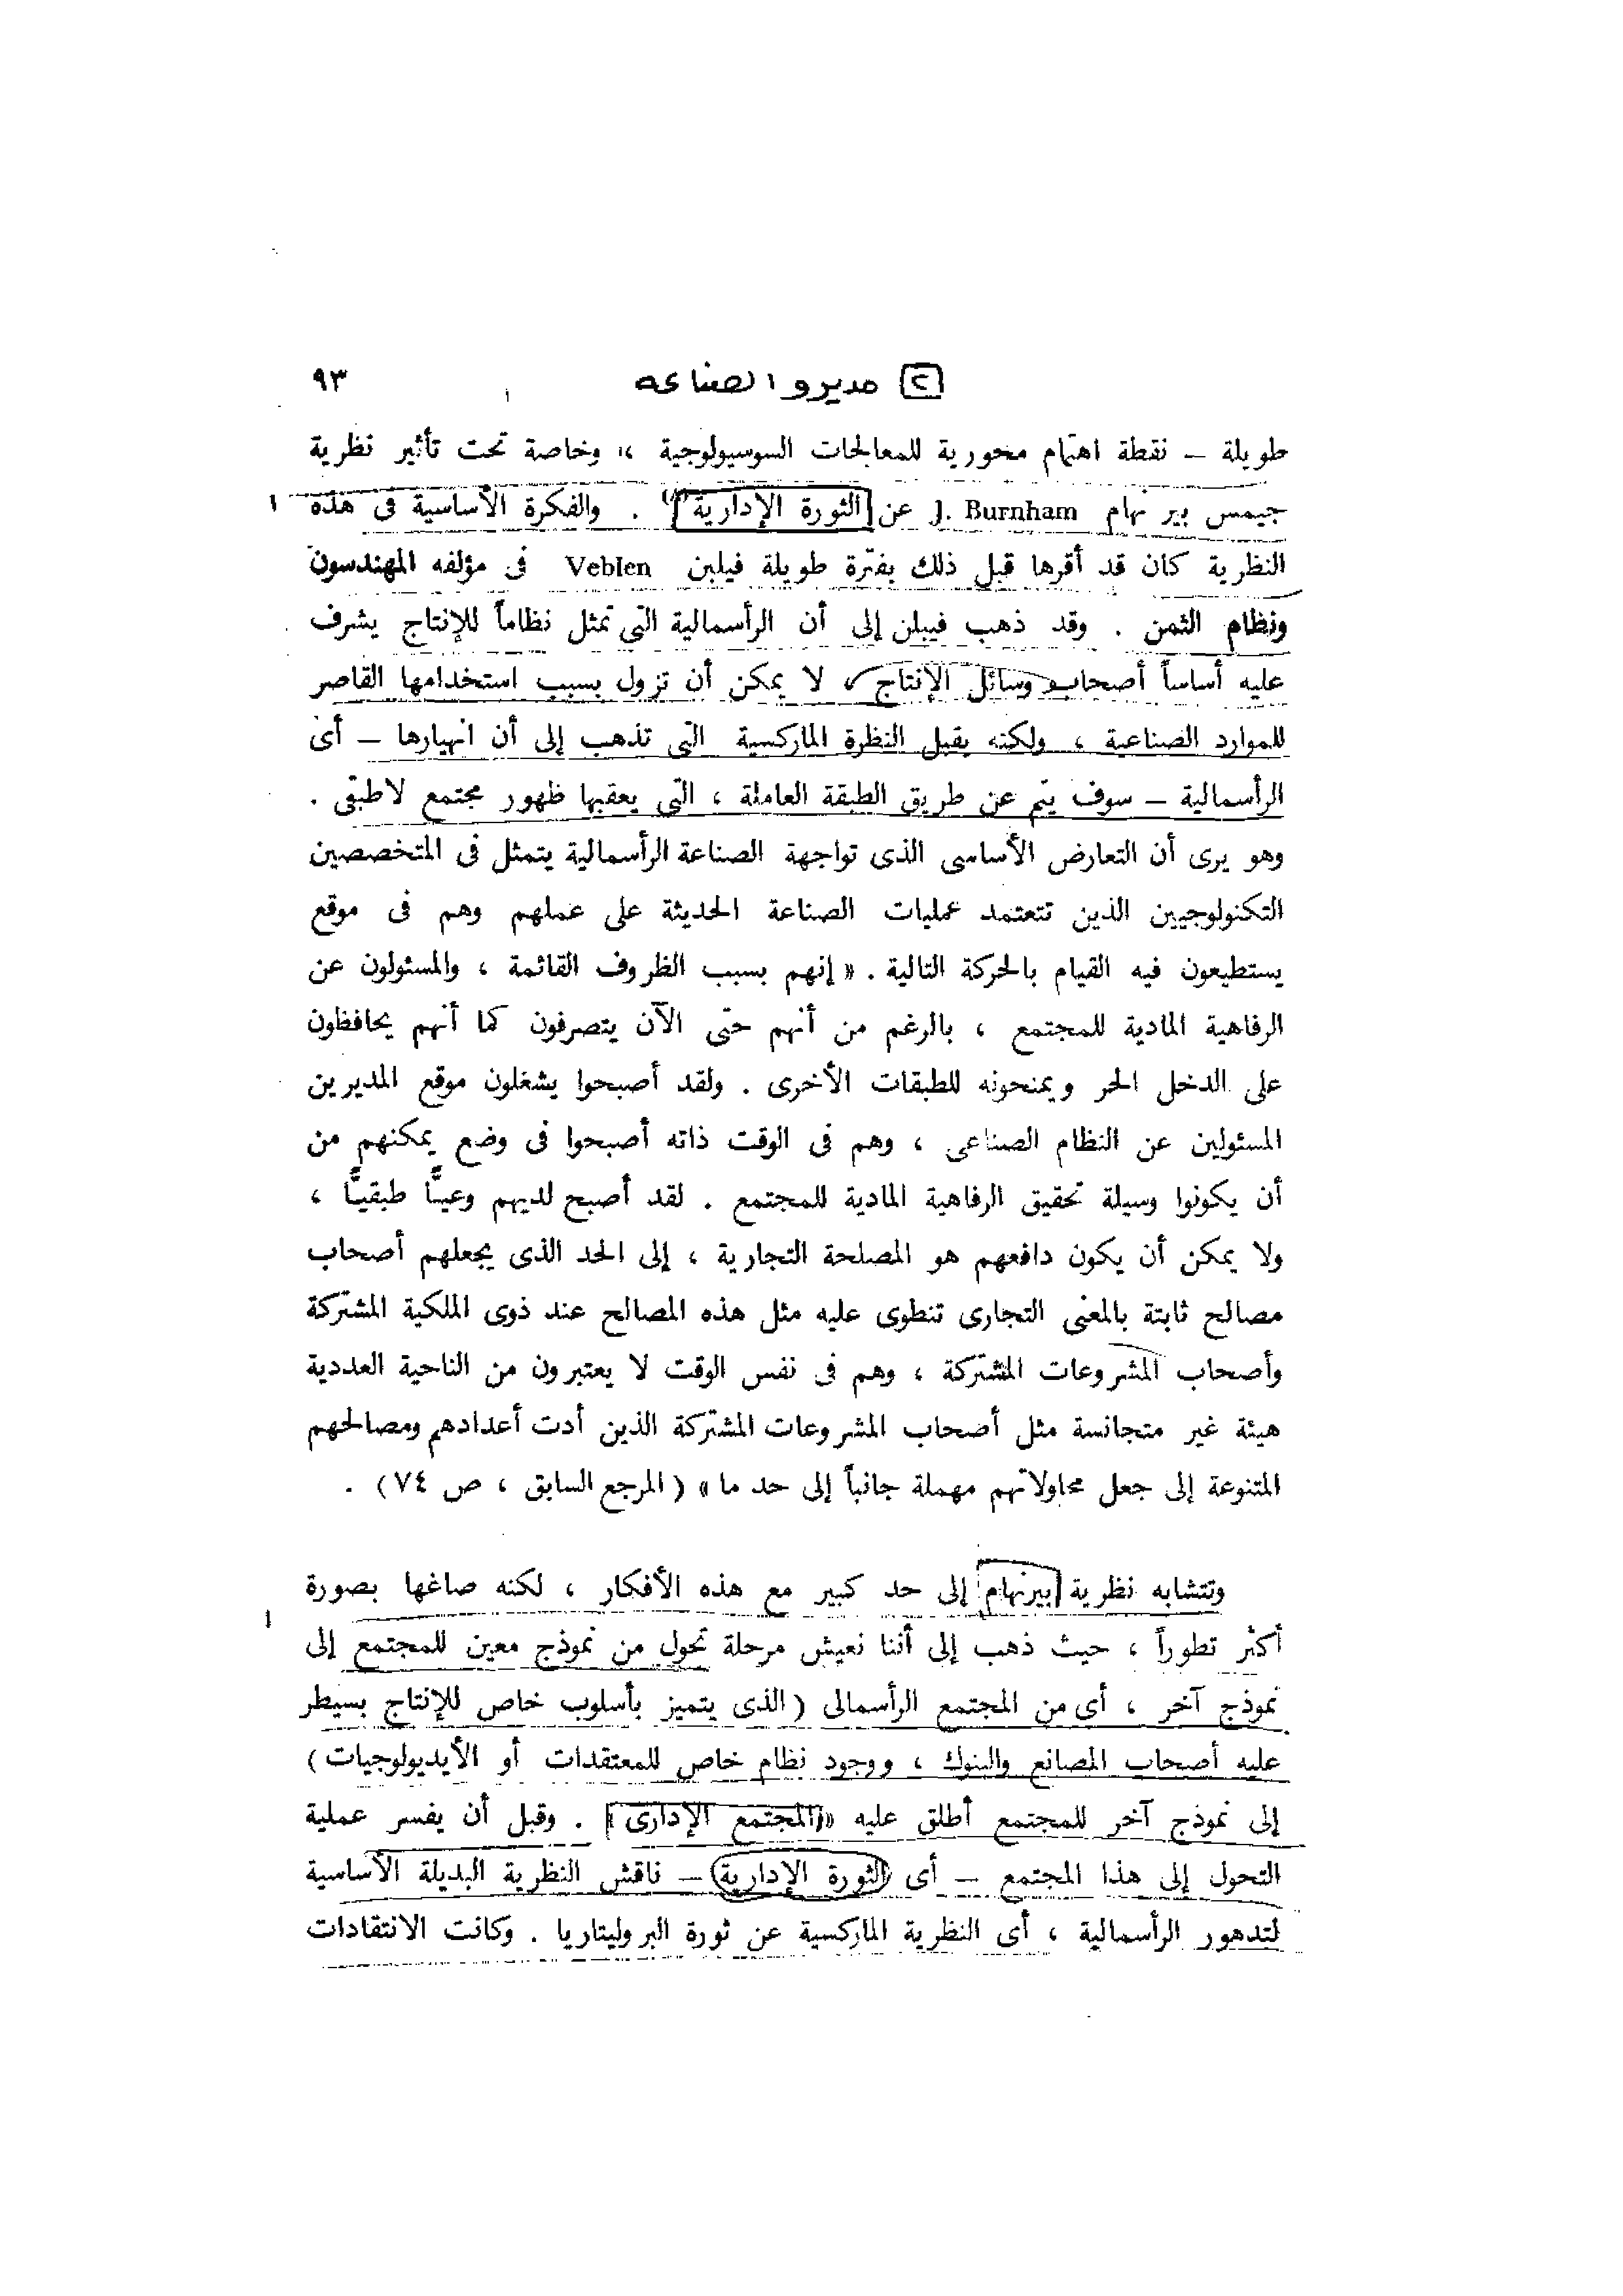 ٢ مديرو الصناعه ٩٣
طويلة – نقطة اهتمام محورية للمعالجات السوسيولوجية ، وخاصة تحت تأثير نظرية
جيمس بيرنهام J. Burnham عن الثورة الإدارية(٨) . والفكرة الأساسية فى هذه
النظرية كان قد أقرها قبل ذلك بفترة طويلة فيلبن Veblen فى مؤلفه المهندسون
ونظام الثمن . وقد ذهب فيبلن إلى أن الرأسمالية التى تمثل نظاماً للإنتاج يشرف
عليه أساساً أصحاب وسائل الإنتاج ، لا يمكن أن تزول بسبب استخدامها القاصر
للموارد الصناعية ، ولكنه يقبل النظرة الماركسية التى تذهب إلى أن انهيارها – أى
الرأسمالية – سوف يتم عن طريق الطبقة العاملة ، التى يعقبها ظهور مجتمع لاطبقى .
وهو يرى أن التعارض الأساسى الذى تواجهة الصناعة الرأسمالية يتمثل فى المتخصصين
التكنولوجيين الذين تتعتمد عمليات الصناعة الحديثة على عملهم وهم فى موقع
يستطيعون فيه القيام بالحركة التالية . « إنهم بسبب الظروف القائمة ، والمسئولون عن
الرفاهية المادية للمجتمع ، بالرغم من أنهم حتى الآن يتصرفون كما أنهم يحافظون
على الدخل الحر ويمنحونه للطبقات الأخرى . ولقد أصبحوا يشغلون موقع المديرين
المسئولين عن النظام الصناعى ، وهم فى الوقت ذاته أصبحوا فى وضع يمكنهم من
أن يكونوا وسيلة تحقيق الرفاهية المادية للمجتمع . لقد أصبح لديهم وعيـًّا طبقيـًّا ،
ولا يمكن أن يكون دافعهم هو المصلحة التجارية ، إلى الحد الذى يجعلهم أصحاب
مصالح ثابتة بالمعنى التجارى تنطوى عليه مثل هذه المصالح عند ذوى الملكية المشتركة
وأصحاب المشروعات المشتركة ، وهم فى نفس الوقت لا يعتبرون من الناحية العددية
هيئة غير متجانسة مثل أصحاب المشروعات المشتركة الذين أدت أعدادهم ومصالحهم
المتنوعة إلى جعل محاولاتهم مهملة جانباً إلى حد ما » ( المرجع السابق ، ص ٧٤ ) .
وتتشابه نظرية بيرنهام إلى حد كبير مع هذه الأفكار ، لكنه صاغها بصورة
أكثر تطوراً ، حيث ذهب إلى أننا نعيش مرحلة تحول من نموذج معين للمجتمع إلى
نموذج آخر ، أى من المجتمع الرأسمالى ( الذى يتميز بأسلوب خاص للإنتاج بسيطر
عليه أصحاب المصانع والبنوك ، ووجود نظام خاص للمعتقدات أو الأيديولوجيات )
إلى نموذج آخر للمجتمع أطلق عليه «المجتمع الإدارى» . وقبل أن يفسر عملية
التحول إلى هذا المجتمع – أى الثورة الإدارية – ناقش النظرية البديلة الأساسية
لتدهور الرأسمالية ، أى النظرية الماركسية عن ثورة البروليتاريا . وكانت الانتقادات